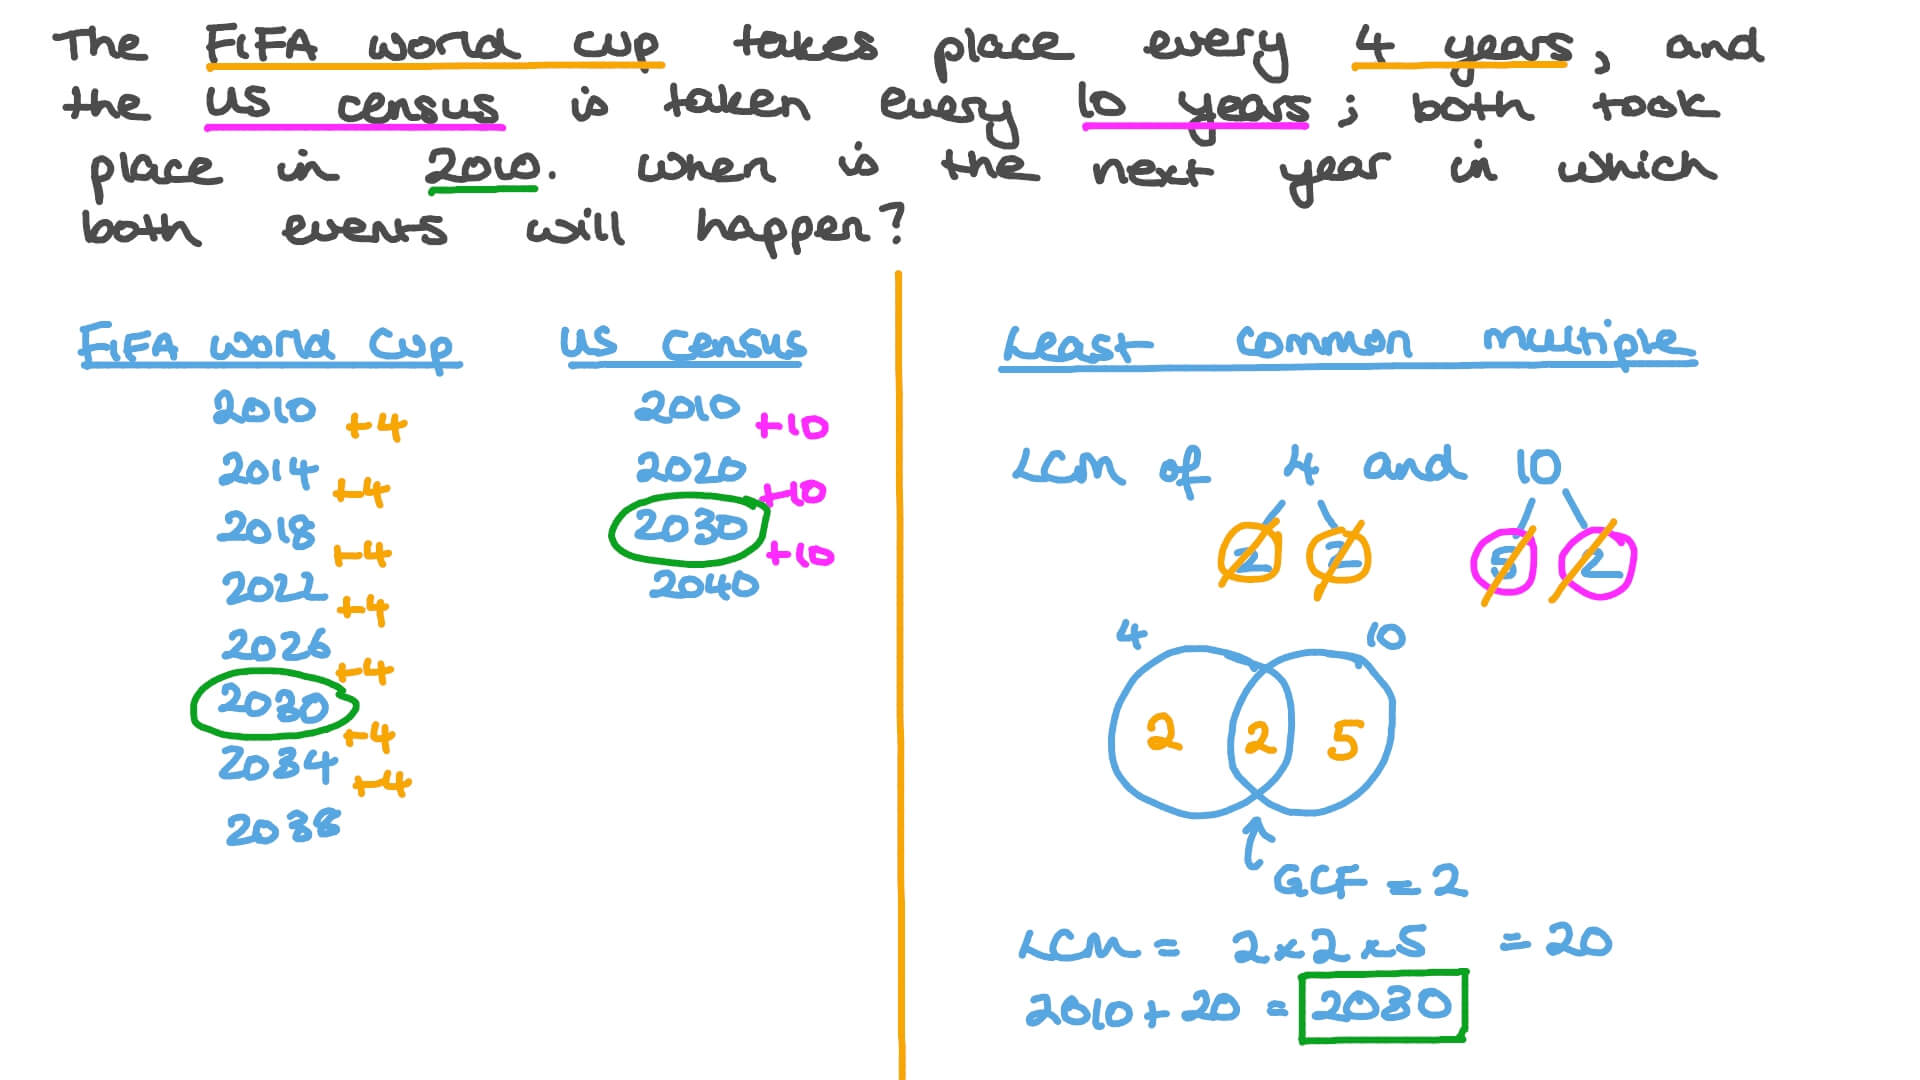 The FIFA world cup takes place every 4 years, and
the US census is taken every 10 years; both took
place in 2010. When is the next year in which
both events will happen?
FIFA world Cup
2010
+4
2014
+4
2018
+4
2022
+4
2026
+4
2030
+4
2034
+4
2038
US Census
2010
+10
2020
+10
2030
+10
2040
Least common multiple
LCM of 4 and 10
2 2 5 2
4 10
2 2 5
GCF = 2
LCM = 2 × 2 × 5 = 20
2010 + 20 = 2030